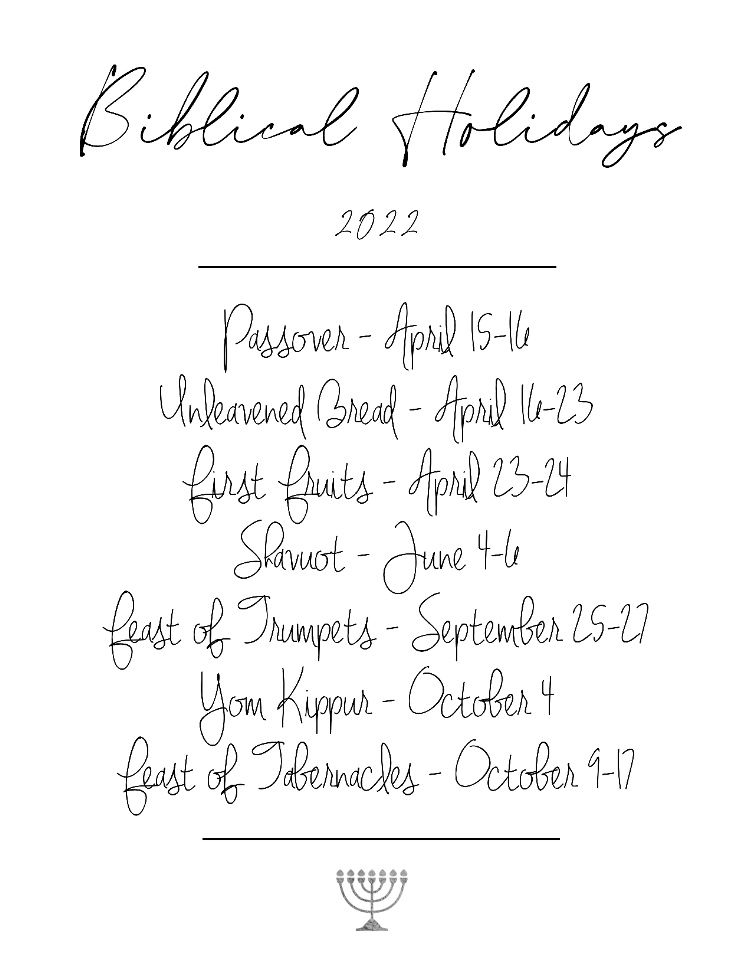 Biblical Holidays
2022
Passover - April 15-16
Unleavened Bread - April 16-23
First Fruits - April 23-24
Shavuot - June 4-6
Feast of Trumpets - September 25-27
Yom Kippur - October 4
Feast of Tabernacles - October 9-17